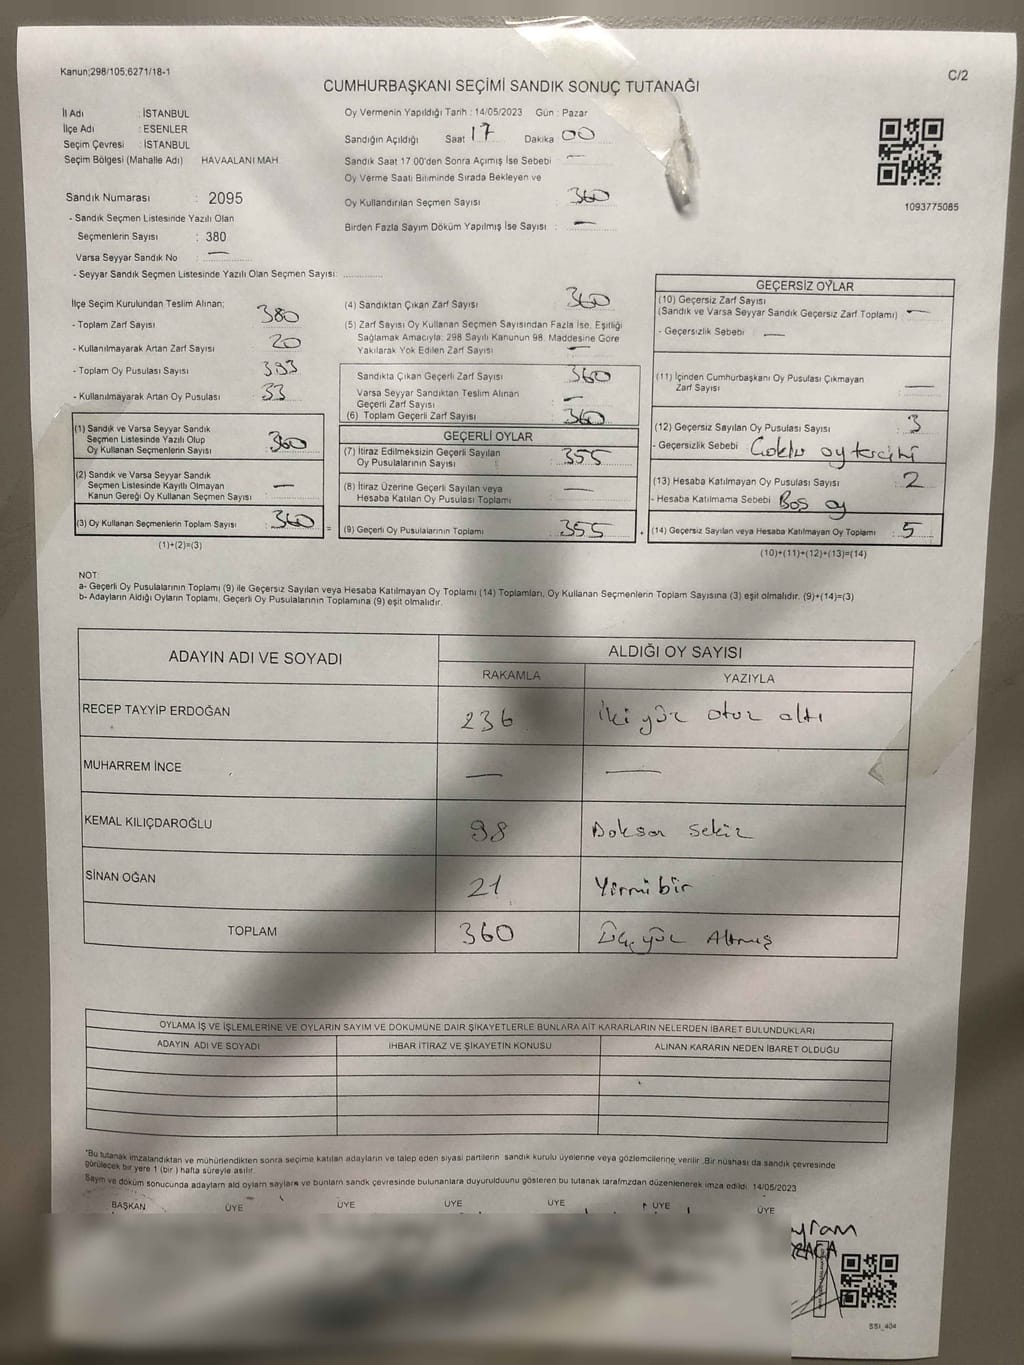 Kanun;298/105;6271/18-1
C/2
CUMHURBAŞKANI SEÇİMİ SANDIK SONUÇ TUTANAĞI
İl Adı : İSTANBUL
İlçe Adı : ESENLER
Seçim Çevresi : İSTANBUL
Seçim Bölgesi (Mahalle Adı) HAVAALANI MAH
Sandık Numarası : 2095
- Sandık Seçmen Listesinde Yazılı Olan
Seçmenlerin Sayısı : 380
Varsa Seyyar Sandık No : —
- Seyyar Sandık Seçmen Listesinde Yazılı Olan Seçmen Sayısı: ............
Oy Vermenin Yapıldığı Tarih : 14/05/2023 Gün : Pazar
Sandığın Açıldığı Saat 17 Dakika 00
Sandık Saat 17 00'den Sonra Açımış İse Sebebi —
Oy Verme Saati Bitiminde Sırada Bekleyen ve
Oy Kullandırılan Seçmen Sayısı : 360
Birden Fazla Sayım Döküm Yapılmış İse Sayısı : —
1093775085
İlçe Seçim Kurulundan Teslim Alınan;
- Toplam Zarf Sayısı : 380
- Kullanılmayarak Artan Zarf Sayısı : 20
- Toplam Oy Pusulası Sayısı : 393
- Kullanılmayarak Artan Oy Pusulası : 33
(1) Sandık ve Varsa Seyyar Sandık
Seçmen Listesinde Yazılı Olup
Oy Kullanan Seçmenlerin Sayısı : 360
(2) Sandık ve Varsa Seyyar Sandık
Seçmen Listesinde Kayıtlı Olmayan
Kanun Gereği Oy Kullanan Seçmen Sayısı : —
(3) Oy Kullanan Seçmenlerin Toplam Sayısı : 360
(1)+(2)=(3)
(4) Sandıktan Çıkan Zarf Sayısı : 360
(5) Zarf Sayısı Oy Kullanan Seçmen Sayısından Fazla İse, Eşitliği
Sağlamak Amacıyla; 298 Sayılı Kanunun 98. Maddesine Göre
Yakılarak Yok Edilen Zarf Sayısı : —
Sandıkta Çıkan Geçerli Zarf Sayısı : 360
Varsa Seyyar Sandıktan Teslim Alınan
Geçerli Zarf Sayısı : —
(6) Toplam Geçerli Zarf Sayısı : 360
GEÇERLİ OYLAR
(7) İtiraz Edilmeksizin Geçerli Sayılan
Oy Pusulalarının Sayısı : 355
(8) İtiraz Üzerine Geçerli Sayılan veya
Hesaba Katılan Oy Pusulası Toplamı : —
(9) Geçerli Oy Pusulalarının Toplamı : 355
GEÇERSİZ OYLAR
(10) Geçersiz Zarf Sayısı
(Sandık ve Varsa Seyyar Sandık Geçersiz Zarf Toplamı) : —
- Geçersizlik Sebebi : —
(11) İçinden Cumhurbaşkanı Oy Pusulası Çıkmayan
Zarf Sayısı : —
(12) Geçersiz Sayılan Oy Pusulası Sayısı : 3
- Geçersizlik Sebebi : Çoklu oy tercihi
(13) Hesaba Katılmayan Oy Pusulası Sayısı : 2
- Hesaba Katılmama Sebebi : Boş oy
(14) Geçersiz Sayılan veya Hesaba Katılmayan Oy Toplamı : 5
(10)+(11)+(12)+(13)=(14)
NOT:
a- Geçerli Oy Pusulalarının Toplamı (9) ile Geçersiz Sayılan veya Hesaba Katılmayan Oy Toplamı (14) Toplamları, Oy Kullanan Seçmenlerin Toplam Sayısına (3) eşit olmalıdır. (9)+(14)=(3)
b- Adayların Aldığı Oyların Toplamı, Geçerli Oy Pusulalarının Toplamına (9) eşit olmalıdır.
ADAYIN ADI VE SOYADI
ALDIĞI OY SAYISI
RAKAMLA YAZIYLA
RECEP TAYYİP ERDOĞAN 236 iki yüz otuz altı
MUHARREM İNCE — —
KEMAL KILIÇDAROĞLU 98 Doksan sekiz
SİNAN OĞAN 21 Yirmibir
TOPLAM 360 Üç yüz Altmış
OYLAMA İŞ VE İŞLEMLERİNE VE OYLARIN SAYIM VE DÖKÜMÜNE DAİR ŞİKAYETLERLE BUNLARA AİT KARARLARIN NELERDEN İBARET BULUNDUKLARI
ADAYIN ADI VE SOYADI İHBAR İTİRAZ VE ŞİKAYETİN KONUSU ALINAN KARARIN NEDEN İBARET OLDUĞU
*Bu tutanak imzalandıktan ve mühürlendikten sonra seçime katılan adayların ve talep eden siyasi partilerin sandık kurulu üyelerine veya gözlemcilerine verilir. Bir nüshası da sandık çevresinde
görülecek bir yere 1 (bir) hafta süreyle asılır.
Sayım ve döküm sonucunda adayların ald oyların sayları ve bunların sandk çevresinde bulunanlara duyurulduunu gösteren bu tutanak tarafmzdan düzenlenerek imza edildi. 14/05/2023
BAŞKAN ÜYE ÜYE ÜYE ÜYE ÜYE ÜYE
SSI_404